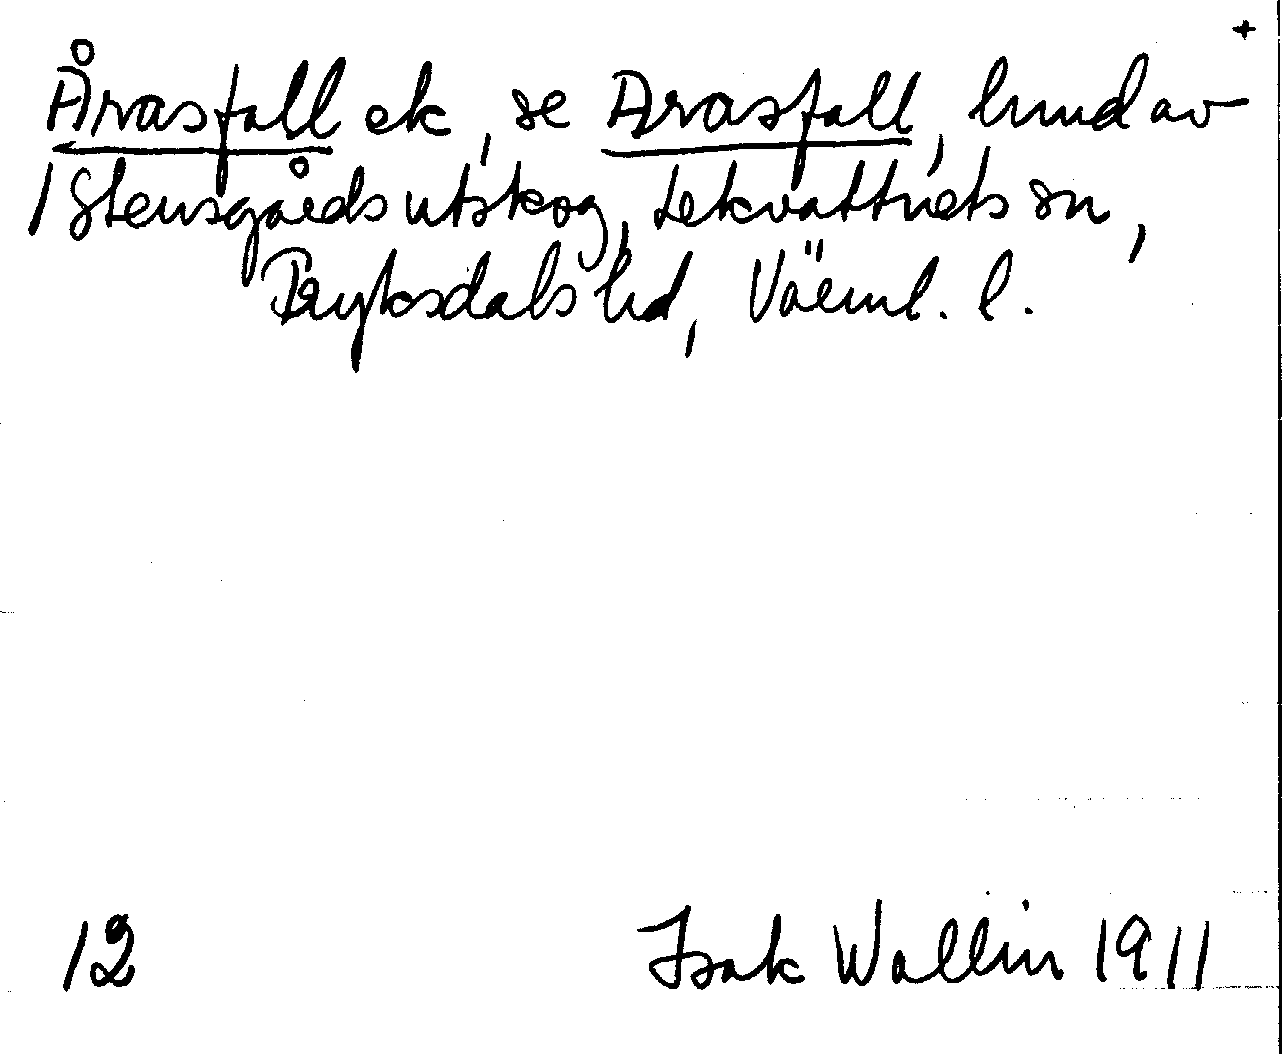 +
Årvasfall ek, se Arvasfall, hmd av
1 Stensgårds utskog, Lekvattnets sn,
Fryksdals hd, Värml. l.
12 Isak Wallin 1911